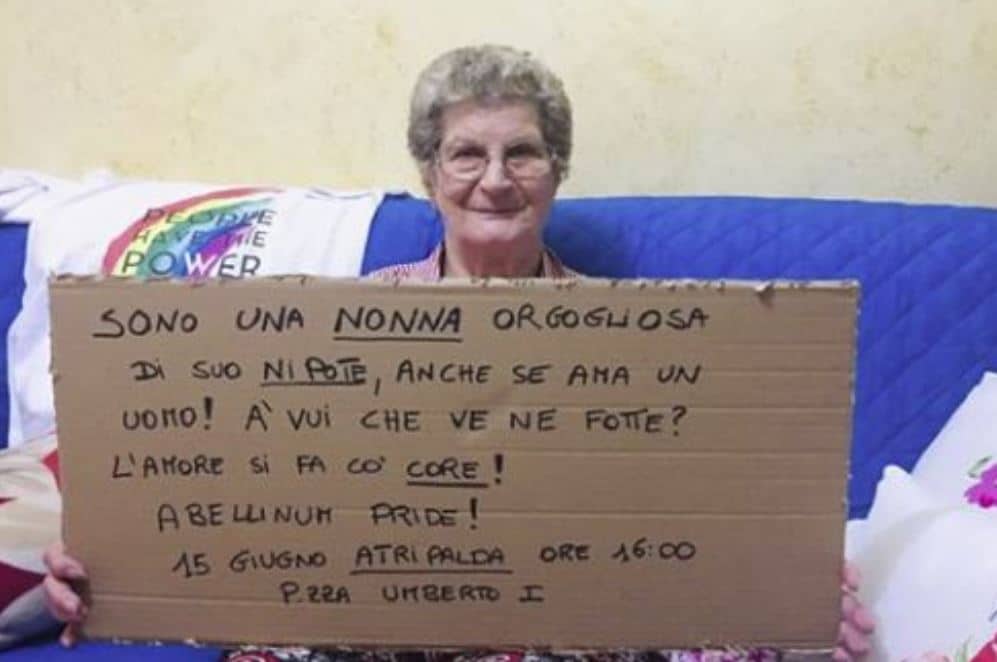 PEOPLE
HAVE THE
POWER
SONO UNA NONNA ORGOGLIOSA
DI SUO NIPOTE, ANCHE SE AMA UN
UOMO! A' VUI CHE VE NE FOTTE?
L'AMORE SI FA CO' CORE!
ABELLINUM PRIDE!
15 GIUGNO ATRIPALDA ORE 16:00
P.ZZA UMBERTO I